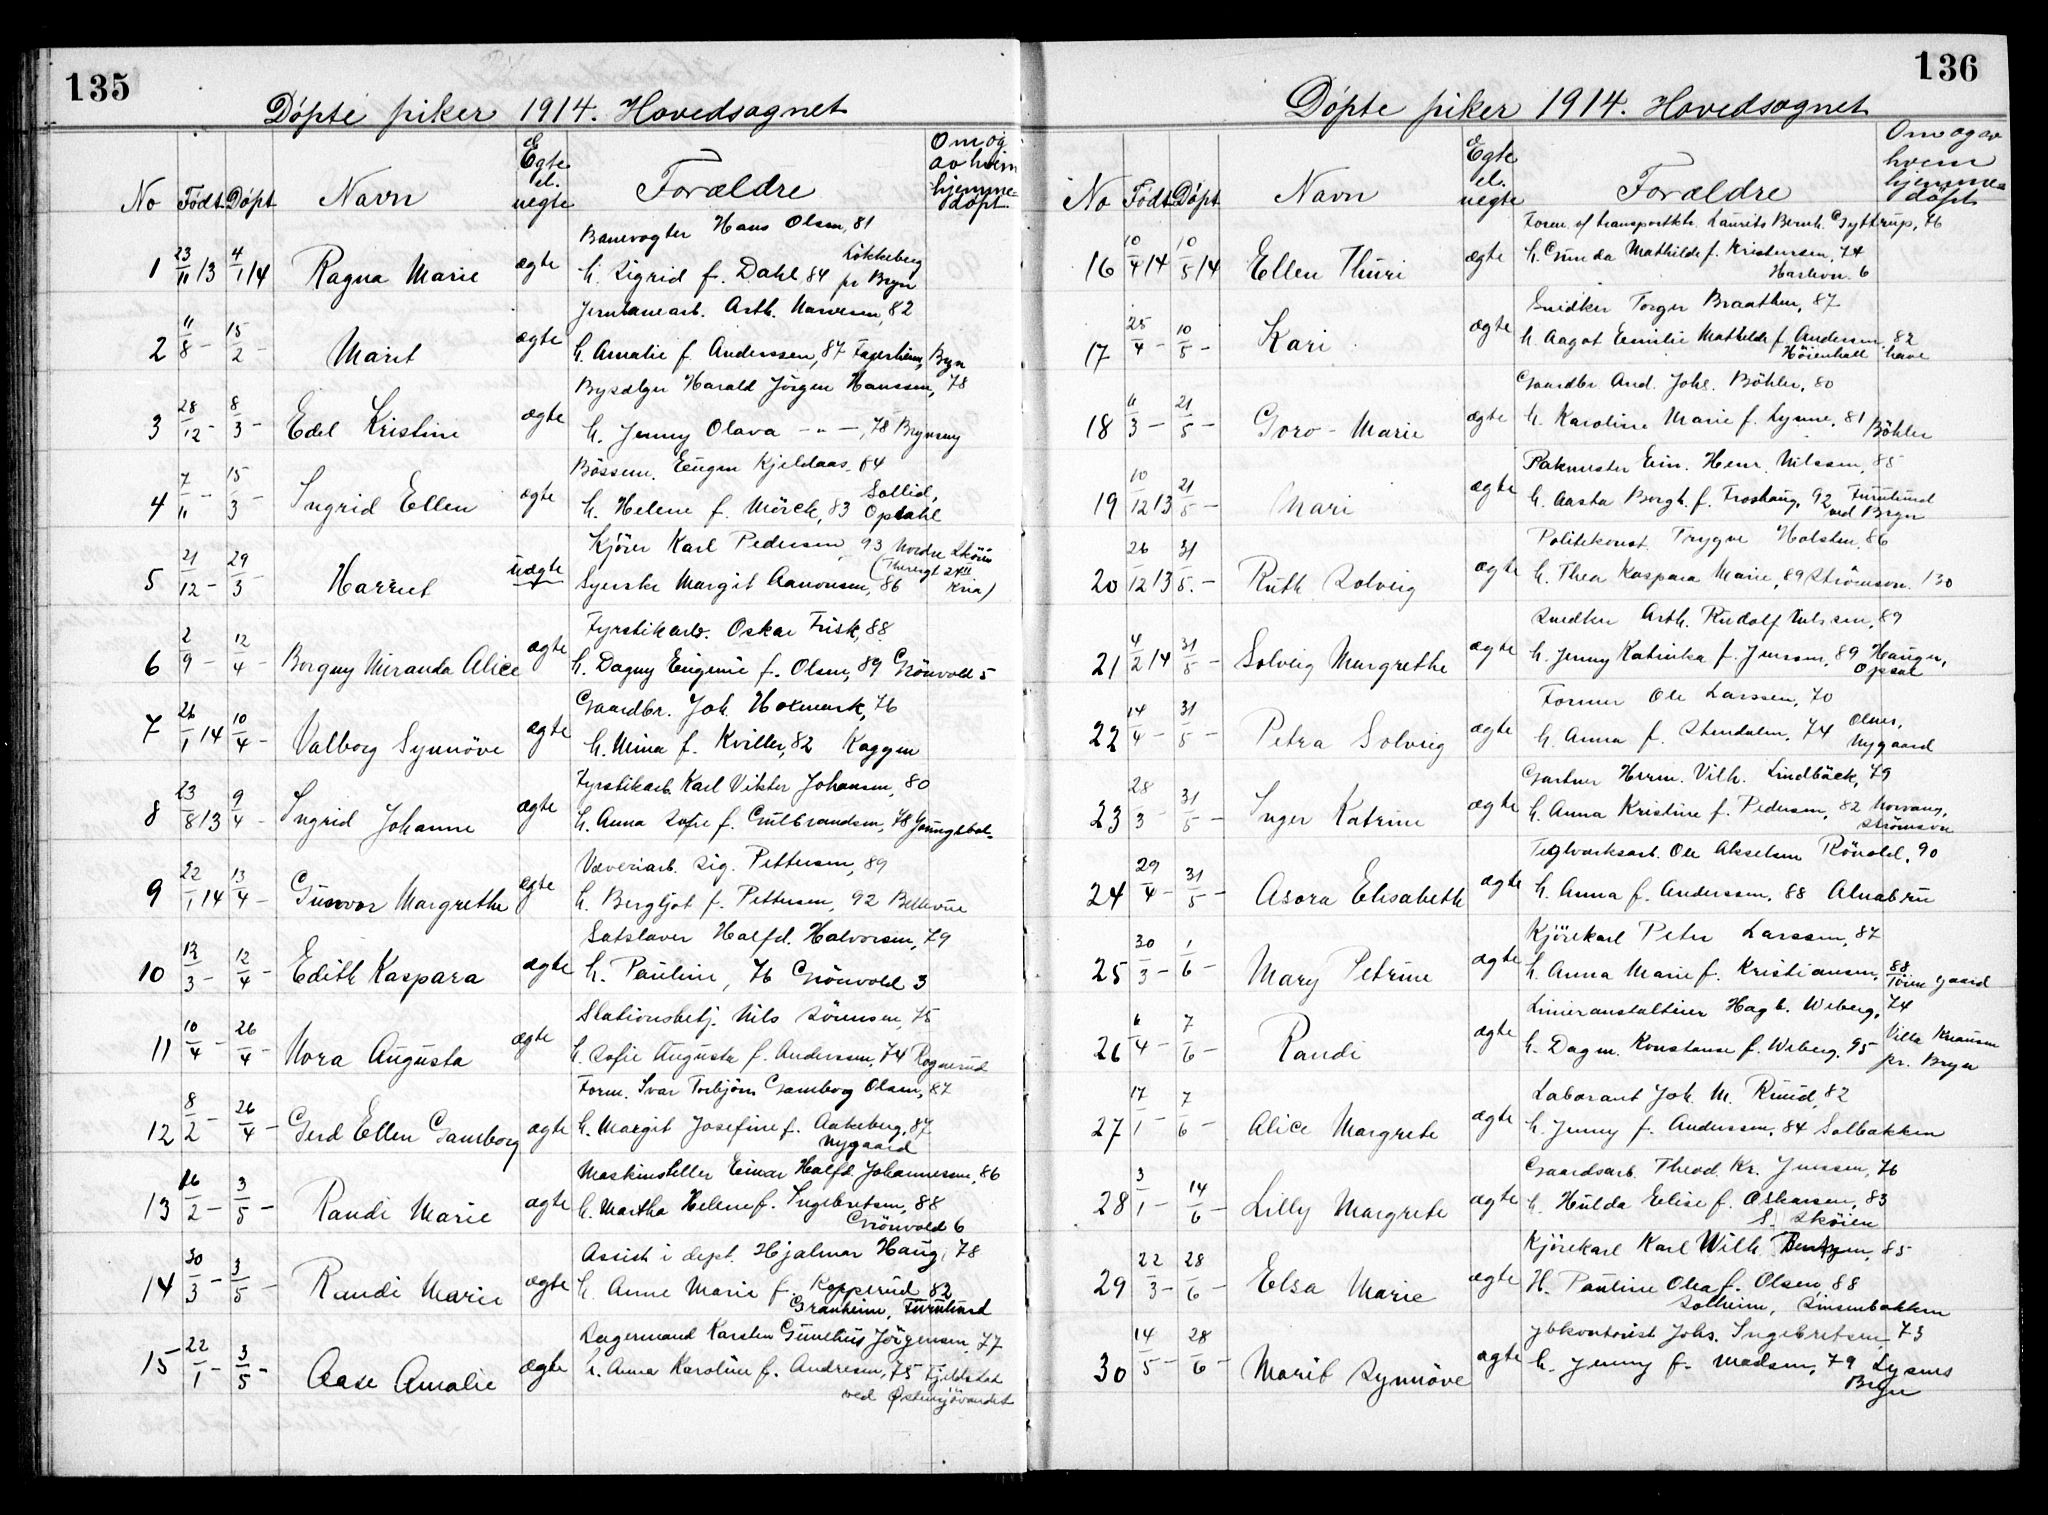 135
Døpte piker 1914. Hovedsognet
No Født Døpt Navn Egte el. uegte Forældre Om og av hvem hjemmedøpt
Banevogter Hans Olsen, 81
1 23/11 13 4/1 14 Ragna Marie ægte h. Sigrid f. Dahl, 84 Løkkeberg pr Bryn
Jernbanearb. Arth. Narvesen, 82
2 11/8 - 15/2 - Marit ægte h. Amalie f. Anderssen, 87 Fagerheim, Bryn
Bysælger Harald Jörgen Hanssen, 78
3 28/12 - 8/3 - Edel Kristine ægte h. Jenny Olava - " -, 78 Brynseng
Bössem. Eugen Kjeldaas, 84
4 7/11 - 15/3 - Ingrid Ellen ægte h. Helene f. Mörck, 83 Sollid, Opsahl
Kjører Karl Pedersen, 93 Nordre Sköien
5 21/12 - 29/3 - Harriet uægte Syerske Margit Aanonsen, 86 Kria)
Fyrstikarb. Oskar Frisk, 88
6 2/9 - 12/4 - Borgny Miranda Alice ægte h. Dagny Eugenie f. Olsen, 89 Grönvold 5
Gaardbr. Joh. Hoxmark, 76
7 26/1 14 10/4 - Valborg Synnöve ægte h. Mina f. Kviller, 82 Kaggen
Fyrstikarb. Karl Viktor Johansen, 80
8 23/8 13 9/4 - Ingrid Johanne ægte h. Anna Sofie f. Gulbrandsen, 78
Væveriarb. Sig. Pettersen, 89
9 22/1 14 13/4 - Gunvor Margrethe ægte h. Bergljot f. Pettersen, 92 Bellevue
Satslaver Halfd. Halvorsen, 79
10 12/3 - 12/4 - Edith Kaspara ægte h. Pauline, 76 Grönvold 3
Stationsbetj. Nils Sörensen, 75
11 10/4 - 26/4 - Nora Augusta ægte h. Sofie Augusta f. Andersen, 74 Rognerud
Form. Ivar Torbjörn Gamborg Olsen, 87
12 8/2 - 26/4 - Gerd Ellen Gamborg ægte h. Margit Josefine f. Aakeberg, 87
Nygaard
Maskinstiller Einar Halfd. Johannessen, 86
13 16/2 - 3/5 - Randi Marie ægte h. Martha Helene f. Ingebretsen, 88
Grönvold 6
Assist. i dept. Hjalmar Haug, 78
14 30/3 - 3/5 - Randi Marie ægte h. Anne Marie f. Kopperud 82
Granheim, Furulund
Lagermand Karsten Günthus Jörgensen, 77
15 22/1 - 3/5 - Aase Amalie ægte h. Anna Karoline f. Andresen, 75 Fjeldstad
ved Østensjövandet
136
Døpte piker 1914. Hovedsognet
No Født Døpt Navn Egte el. uegte Forældre Om og av hvem hjemmedøpt
Form. v/ transportktr. Laurits Bernh. Gyttrup, 76
16 10/4 14 10/5 14 Ellen Thuri ægte h. Gunda Mathilde f. Kristensen, 74
Haslevn. 6
Snidker Torger Braathen, 87
17 25/4 - 10/5 - Kari ægte h. Aagot Emilie Mathilde f. Andersen, 82
Höienhall have
Gaardbr And. Johl. Böhler, 80
18 11/3 - 21/5 - Goro-Marie ægte h. Karoline Marie f. Lynne, 81 Böhler
Pakmester Ein. Henr. Nilssen, 85
19 10/12 13 21/5 - Mari ægte h. Aasta Borgh. f. Troshaug, 92 Furulund
ved Bryn
Politikonst. Trygve Holsten, 86
20 26/12 13 31/5. - Ruth Solveig ægte h. Thea Kaspara Marie, 89 Strömsvn. 130
Snedker Arth. Rudolf Nilssen, 89
21 4/2 14 31/5 - Solveig Margrethe ægte h. Jenny Katinka f. Jenssen, 89 Haugen,
Opsal
Former Ole Larssen, 70
22 14/4 - 31/5 - Petra Solveig ægte h. Anna f. Stendalen, 74 Nygaard
Gartner Herm. Vilh. Lindbäck, 79
23 28/3 - 31/5 - Inger Katrine ægte h. Anna Kristine f. Pedersen, 82
Strömsvn
Teglverksarb. Ole Akselsen Rönold, 90
24 29/4 - 31/5 - Asora Elisabeth ægte h. Anna f. Anderssen, 88 Alnabru
Kjörekarl Peter Larssen, 87
25 30/3 - 1/6 - Mary Petrine ægte h. Anna Marie f. Kristiansen, 88
Töien gaard
Linieranstalteier Hagb. Weberg, 74
26 6/4 - 7/6 - Randi ægte h. Dagm. Konstanse f. Weberg, 95 Villa Knausen
pr. Bryn
Laborant Joh. M. Ruud, 82
27 17/1 - 7/6 - Alice Margrete ægte h. Jenny f. Anderssen, 84 Solbakken
Gaardsarb. Theod. Kr. Jenssen, 76
28 3/1 - 14/6 - Lilly Margrete ægte h. Hulda Elise f. Oskarsen, 83
S. Sköien
Kjörekarl Karl Wilh. Bentzen, 85
29 22/3 - 28/6 - Elsa Marie ægte H. Pauline Olea f. Olsen, 88
Solheim, Sinsenbakken
Johs. Ingebretsen, 73
30 14/5 - 28/6 - Marit Synnöve ægte h. Jenny f. Madsen, 79 Lysnes
Bryn